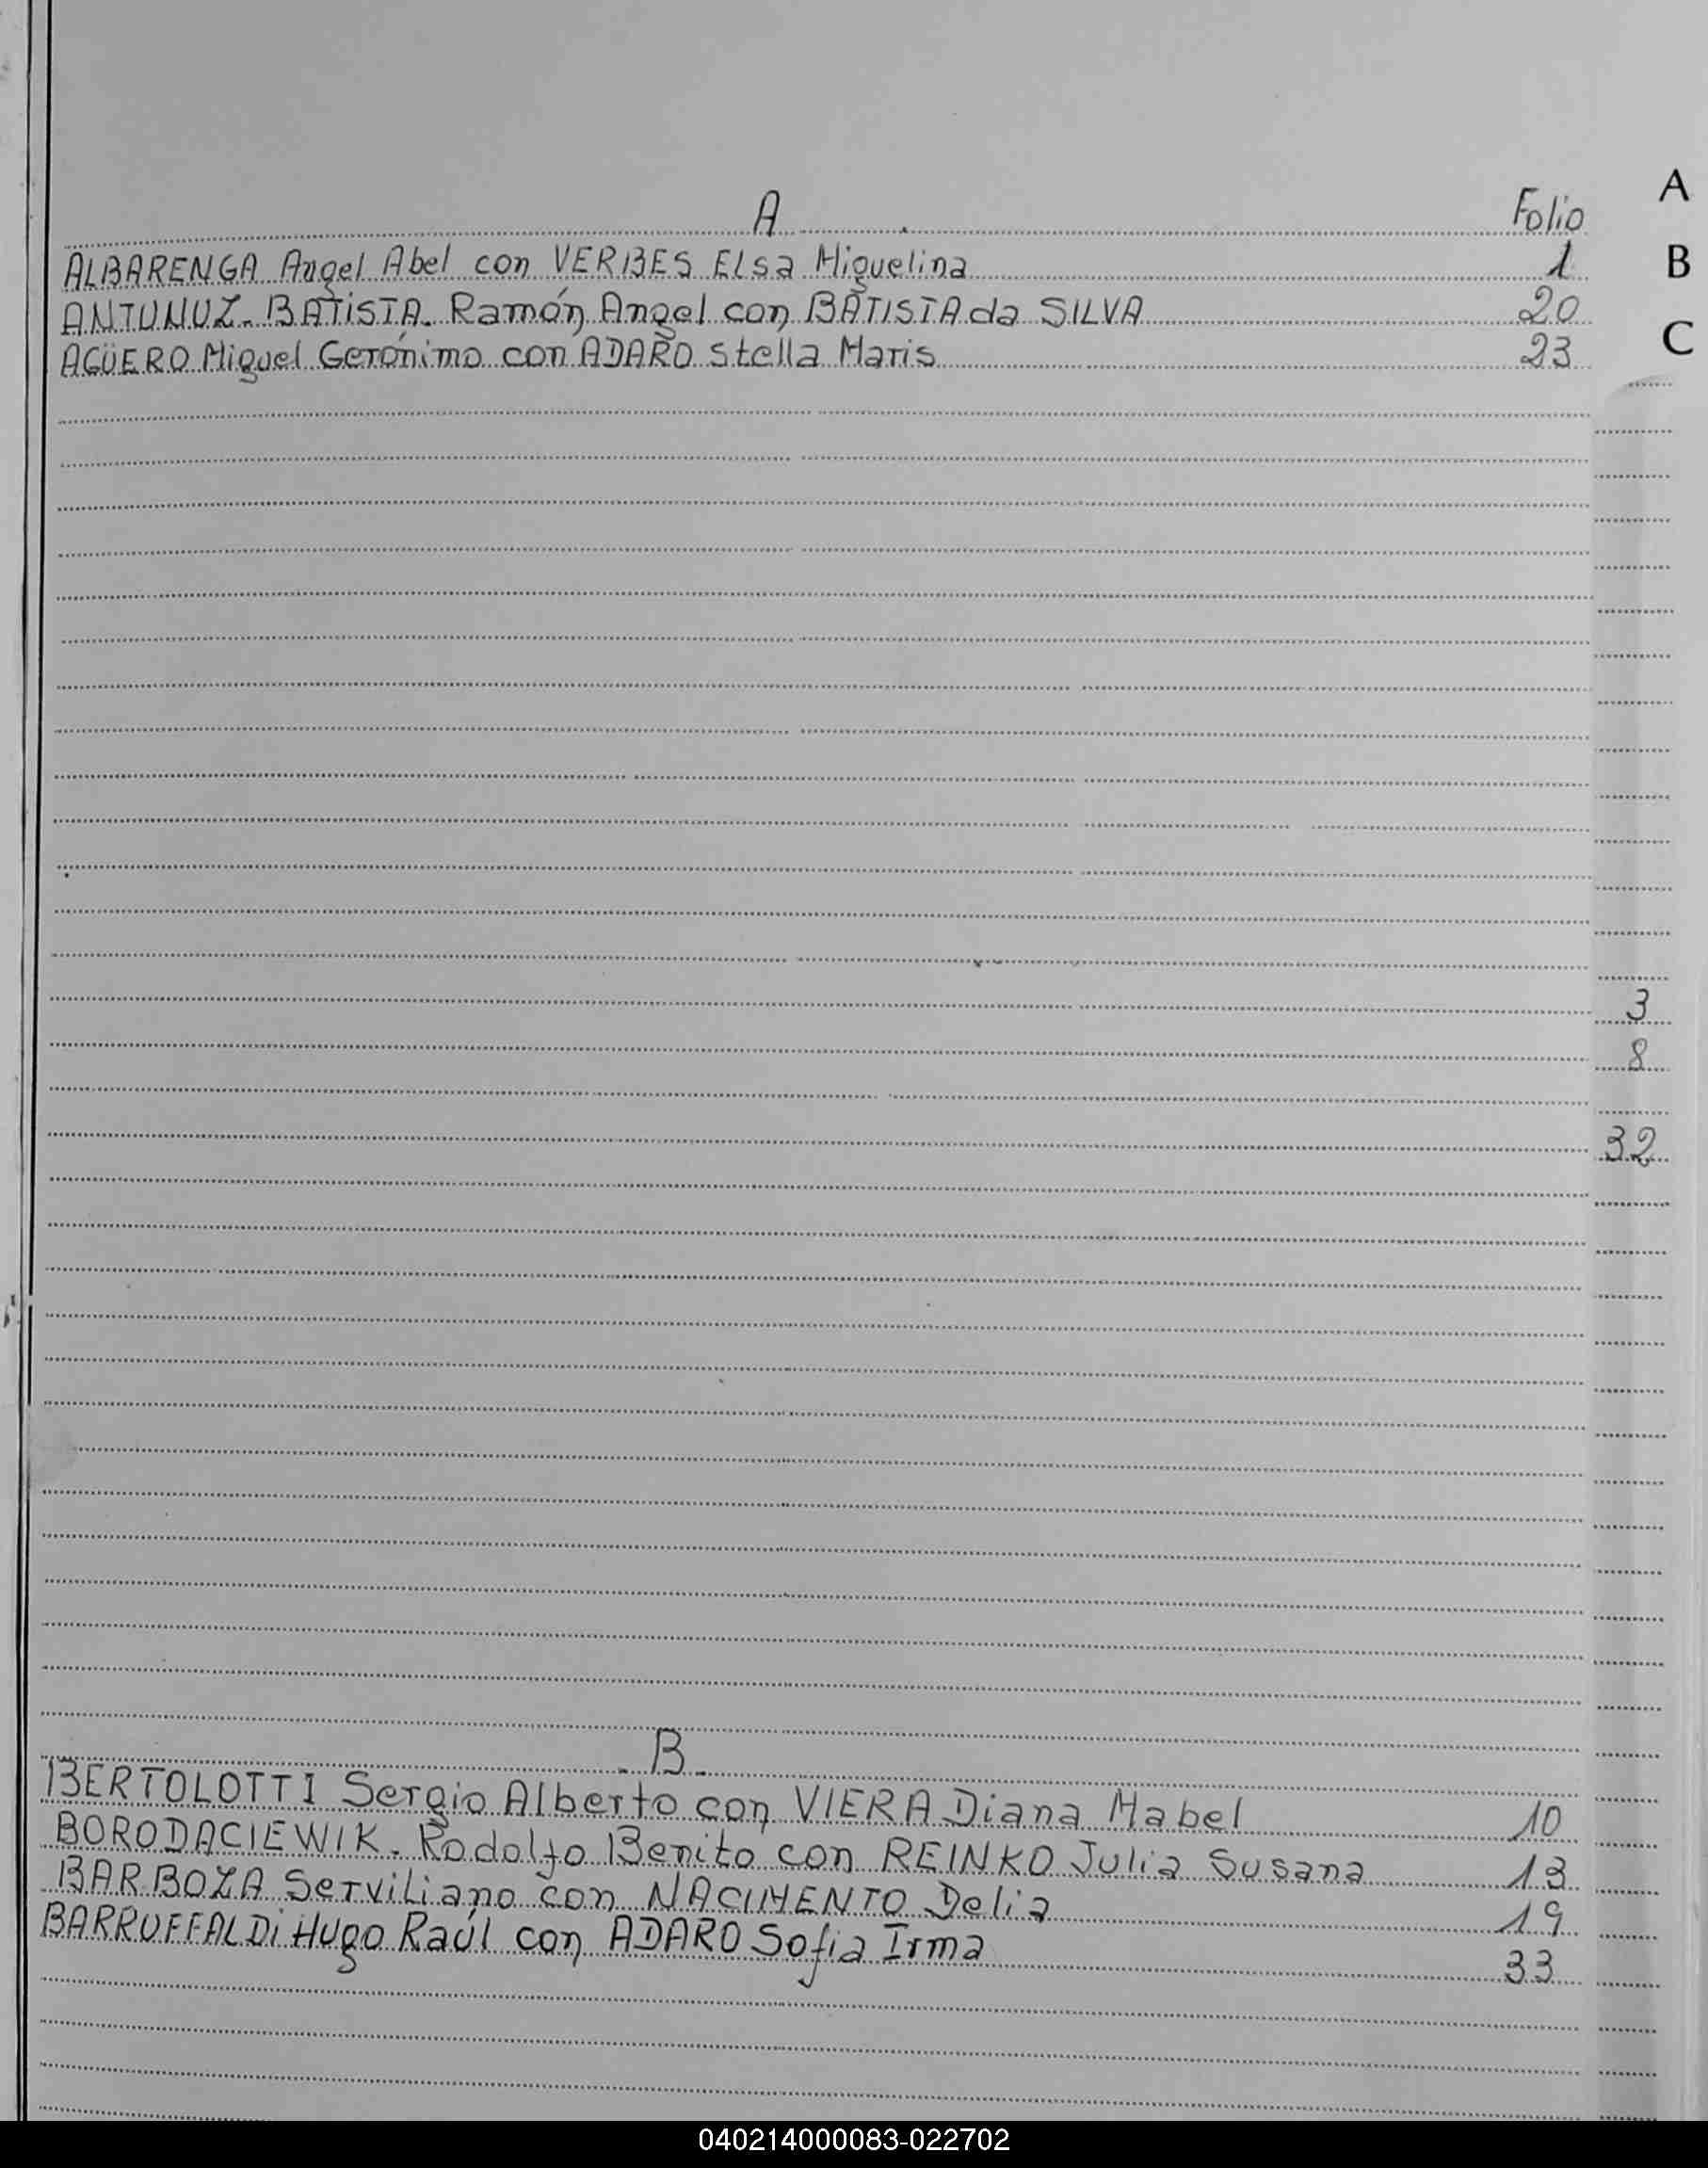 A Folio
ALBARENGA Angel Abel con VERBES Elsa Miguelina 1
ANTUNUZ-BATiSTA. Ramón Angel con BATISTA da SILVA 20
AGÜERO Miguel Gerónimo con ADARO Stella Maris 23
A
B
C
3
8
32
. B.
BERTOLOTTI Sergio Alberto con VIERA Diana Mabel 10
BORODACIEWIK. Rodolfo Benito con REINKO Julia Susana 13
BARBOZA Serviliano con NACIMENTO Delia 19
BARRUFFALDi Hugo Raúl con ADARO Sofia Irma 33
040214000083-022702